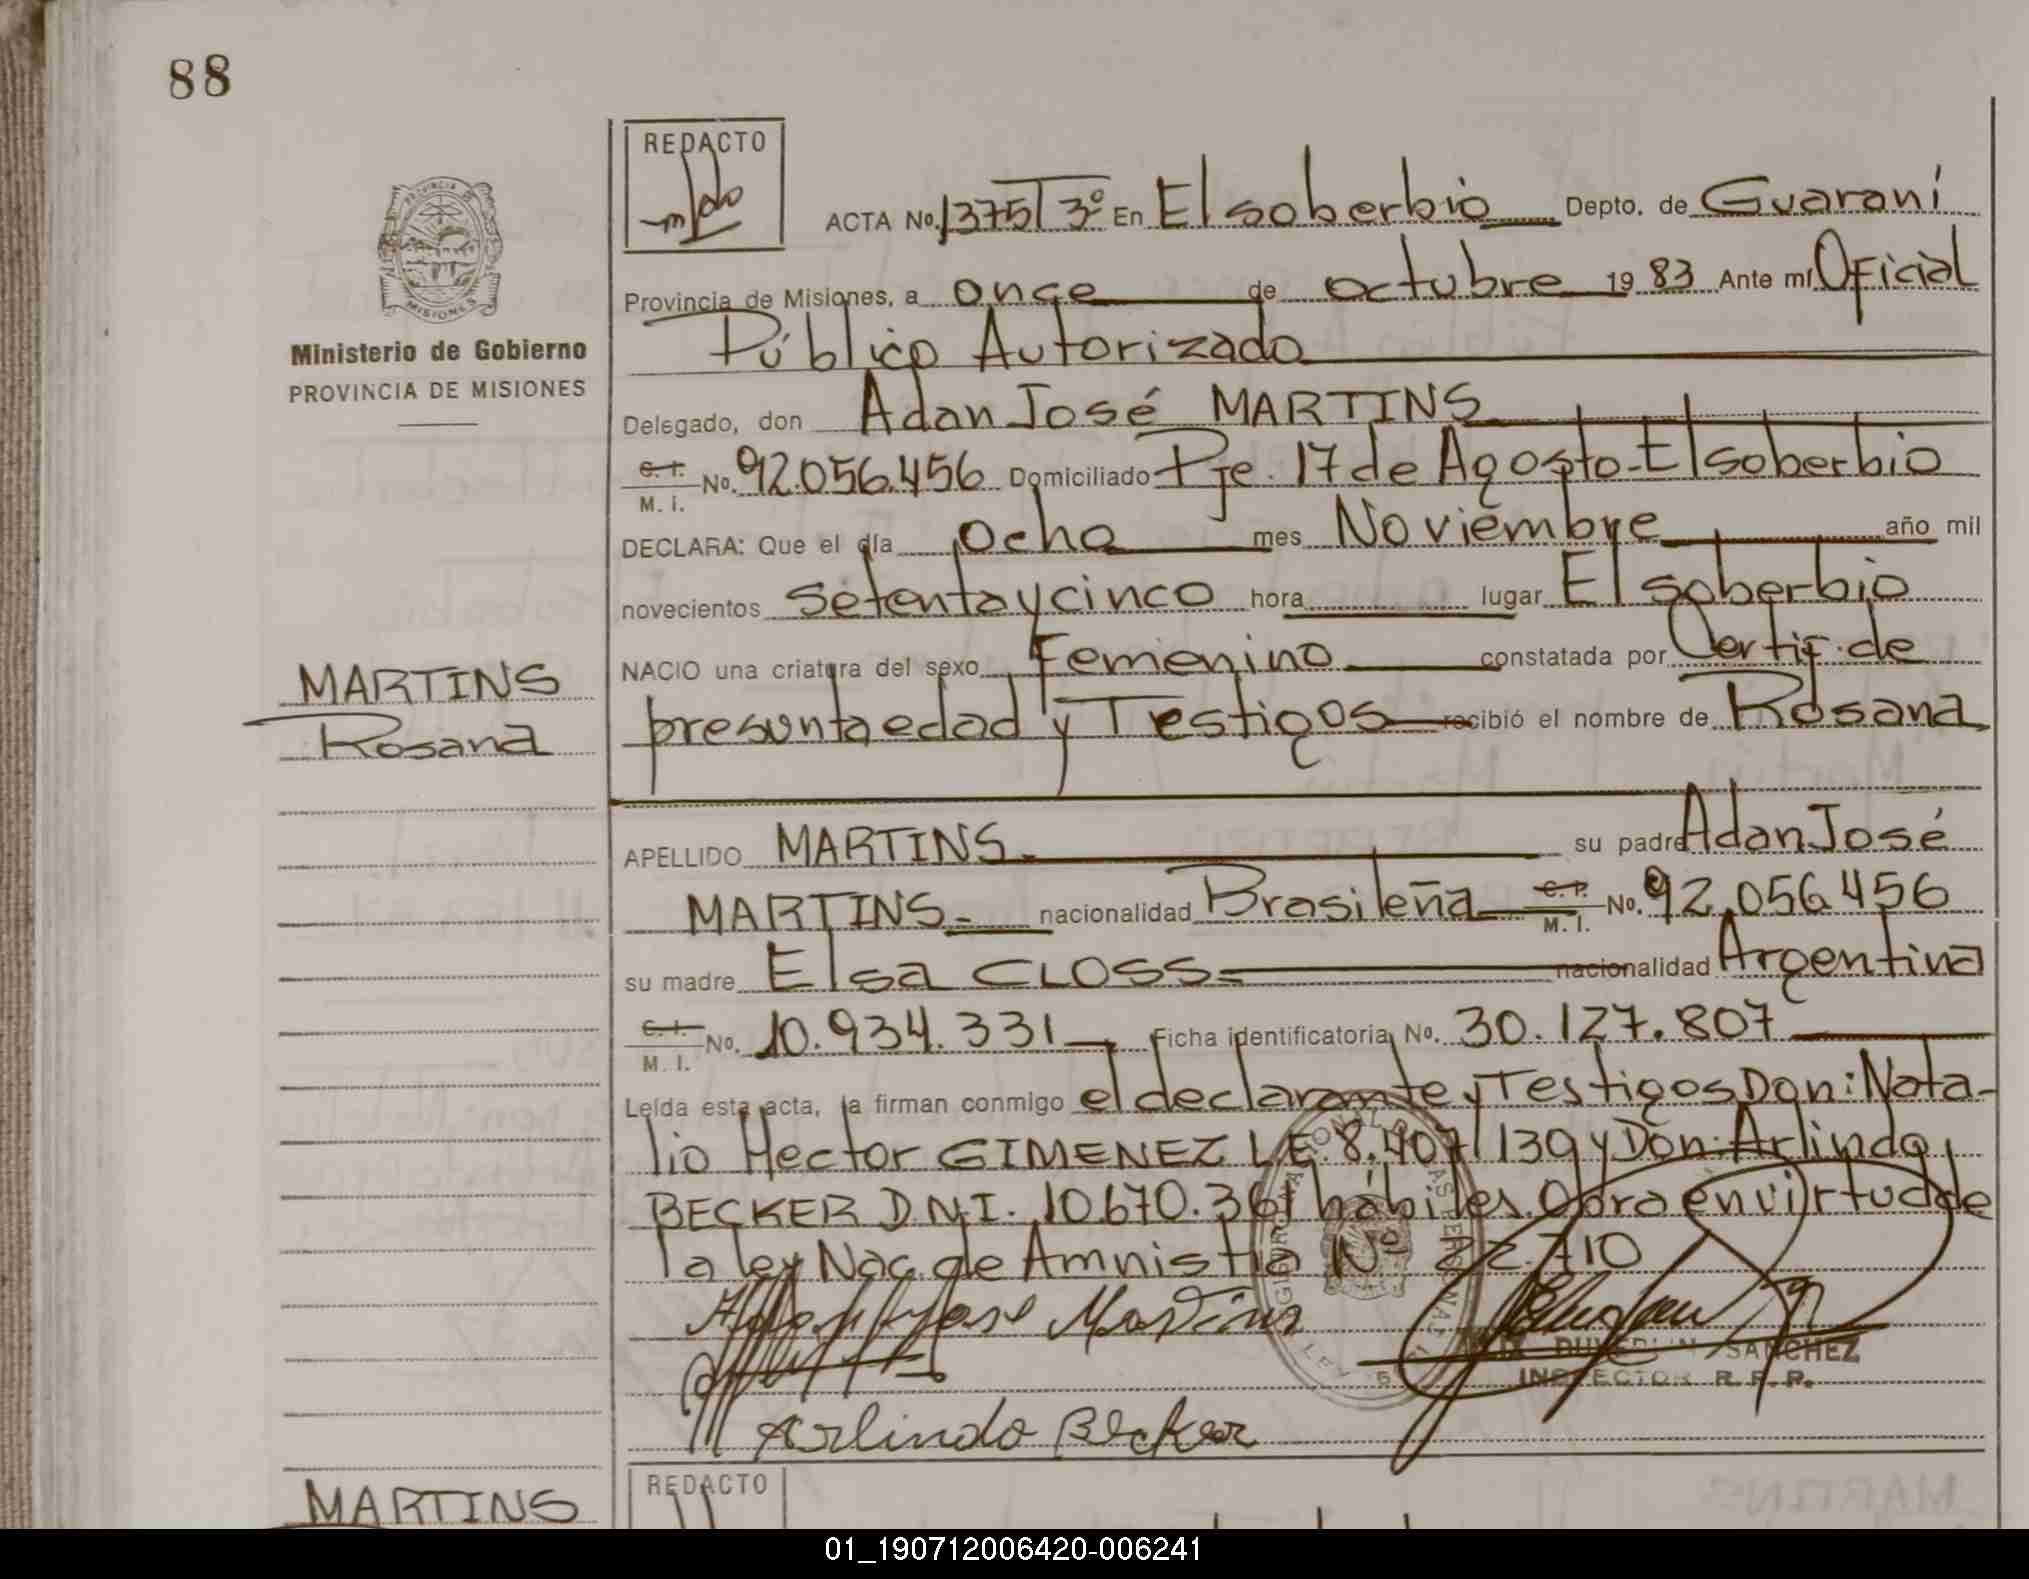 88
REDACTO
ACTA No. 1375 T 3º En El soberbio Depto. de Guaraní
Provincia de Misiones, a once de octubre 19 83 Ante mí Oficial
Público Autorizado
Delegado, don Adan José MARTINS
C. I. M. I. No. 92.056.456 Domiciliado Pje. 17 de Agosto - El soberbio
DECLARA: Que el día ocho mes Noviembre año mil
novecientos setenta y cinco hora lugar El soberbio
NACIO una criatura del sexo Femenino constatada por Certif. de
presunta edad y Testigos recibió el nombre de Rosana
APELLIDO MARTINS su padre Adan José
MARTINS nacionalidad Brasileña C. P. M. I. No. 92.056.456
su madre Elsa CLOSS nacionalidad Argentina
C. I. M. I. No. 10.934.331 Ficha identificatoria No. 30.127.807
Leída esta acta, la firman conmigo el declarante y Testigos Don: Nata-
lio Hector GIMENEZ L.E. 8.407.139 y Don: Arlindo
BECKER D.N.I. 10.670.361 hábiles. Obra en virtud de
la ley Nac. de Amnistia Nº 22.710
Adan Jose Martins
SANCHEZ
INSPECTOR R. P. P.
Arlindo Becker
PROVINCIA DE
MISIONES
Ministerio de Gobierno
PROVINCIA DE MISIONES
MARTINS
Rosana
MARTINS
REDACTO
01_190712006420-006241